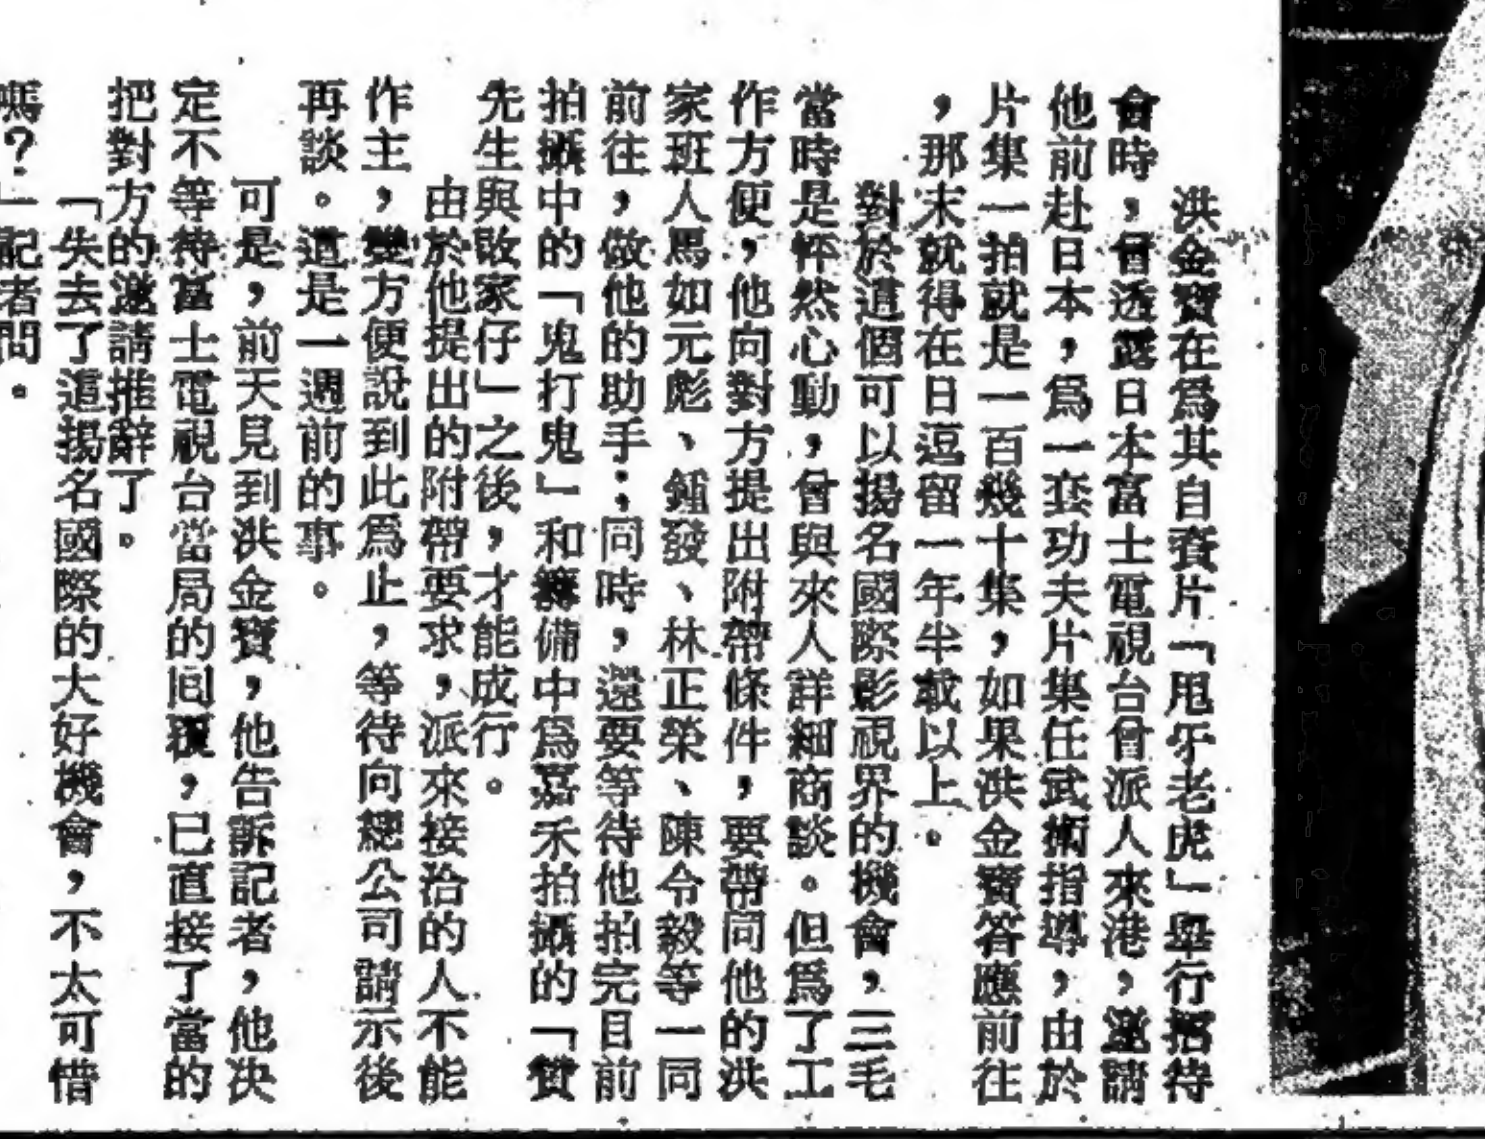 洪金寶在爲其自資片「甩牙老虎」舉行招待
會時，曾透露日本富士電視台曾派人來港，邀請
他前赴日本，爲一套功夫片集任武術指導，由於
片集一拍就是一百幾十集，如果洪金寶答應前往
，那末就得在日逗留一年半載以上。
對於這個可以揚名國際影視界的機會，三毛
當時是怦然心動，曾與來人詳細商談。但爲了工
作方便，他向對方提出附帶條件，要帶同他的洪
家班人馬如元彪、鍾發、林正榮、陳令毅等一同
前往，做他的助手；同時，還要等待他拍完目前
拍攝中的「鬼打鬼」和籌備中爲嘉禾拍攝的「贊
先生與敗家仔」之後，才能成行。
由於他提出的附帶要求，派來接洽的人不能
作主，雙方便說到此爲止，等待向總公司請示後
再談。這是一週前的事。
可是，前天見到洪金寶，他告訴記者，他決
定不等待富士電視台當局的回覆，已直接了當的
把對方的邀請推辭了。
「失去了這揚名國際的大好機會，不太可惜
嗎？」記者問。